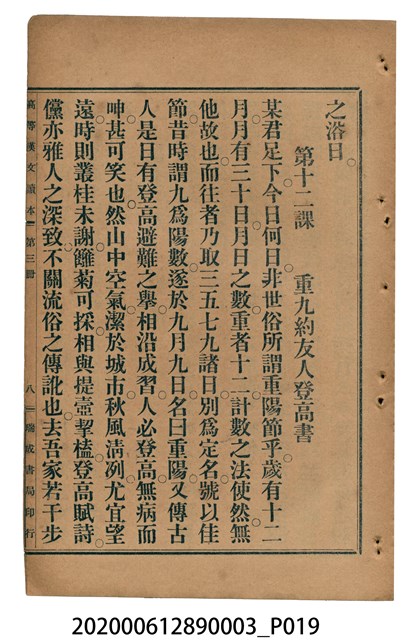 之浴日。
第十二課　重九約友人登高書
某君足下。今日何日。非世俗所謂重陽節乎。歲有十二
月。月有三十日。月日之數重者十二。計數之法使然。無
他故也。而往者乃取三五七九諸日。別爲定名。號以佳
節。昔時謂九爲陽數。遂於九月九日名曰重陽。又傳古
人是日有登高避難之舉。相沿成習。人必登高。無病而
呻。甚可笑也。然山中空氣。潔於城市。秋風淸冽。尤宜望
遠。時則叢桂未謝。籬菊可採。相與提壺挈榼。登高賦詩。
儻亦雅人之深致。不關流俗之傳訛也。去吾家若干步
高等漢文讀本　第三冊　八　瑞成書局印行
202000612890003_P019